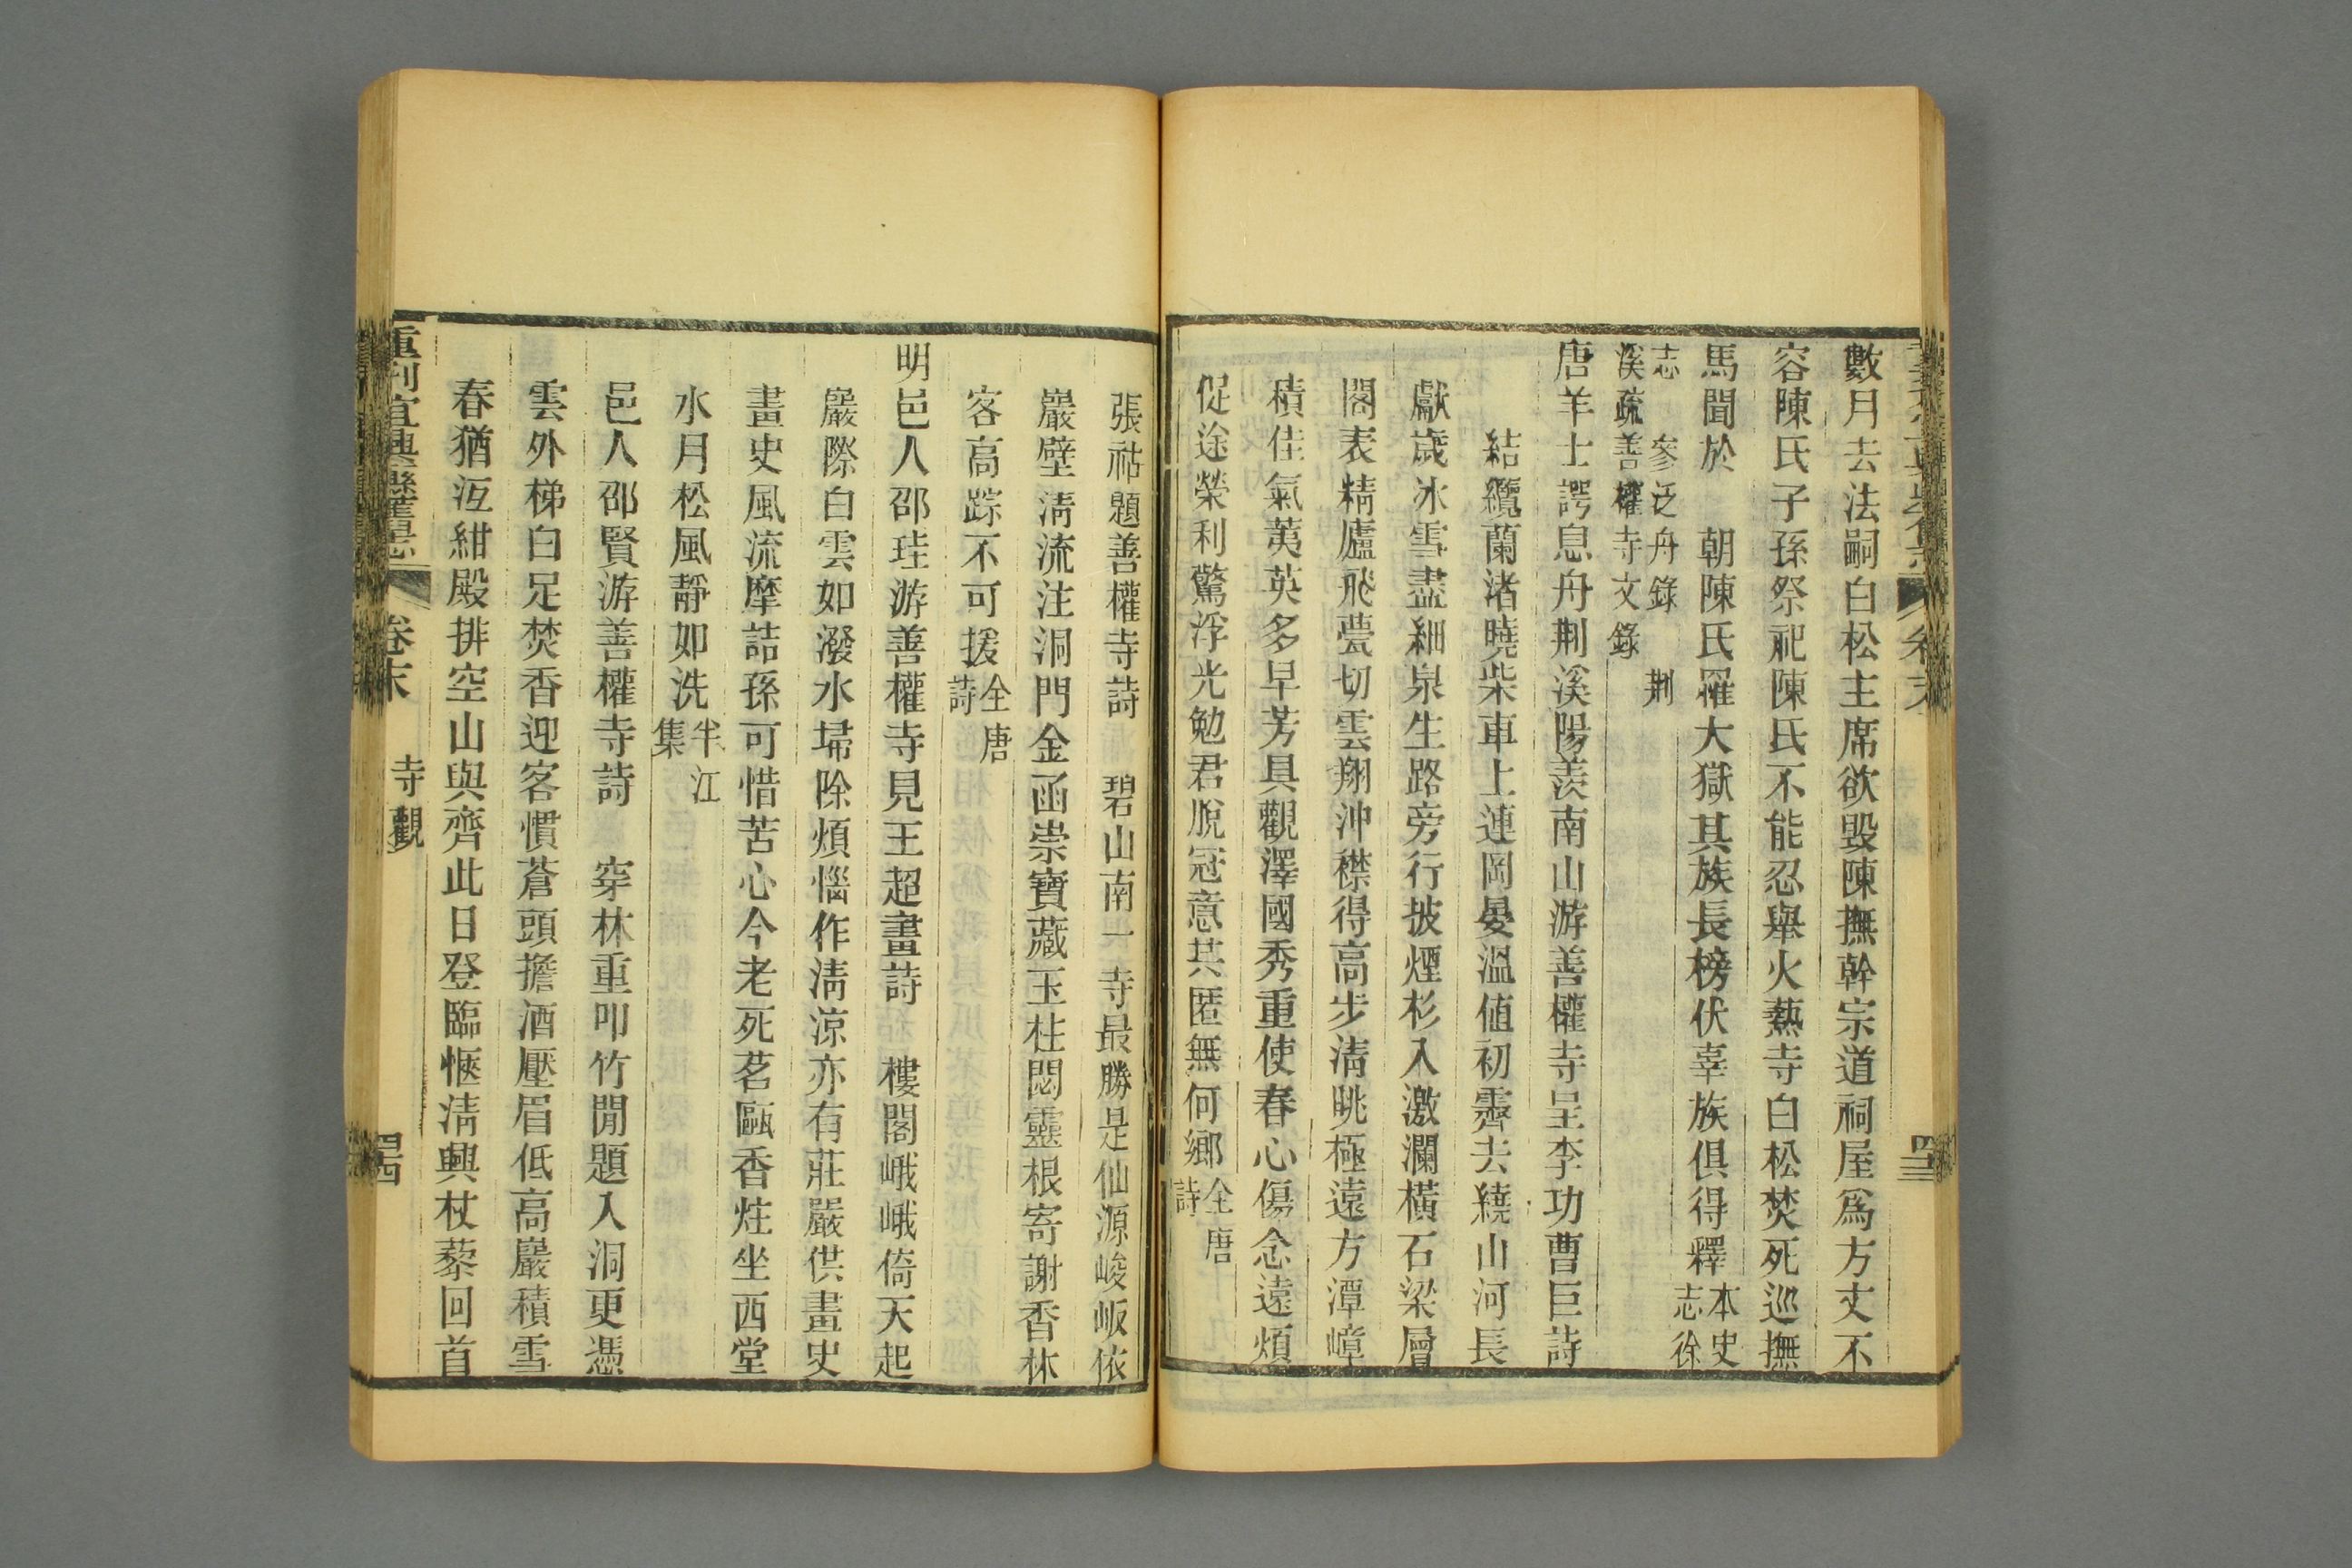 數月去法嗣白松主席欲毀陳撫幹宗道祠屋爲方丈不
容陳氏子孫祭祀陳氏不能忍舉火爇寺白松焚死巡撫
馬聞於 朝陳氏罹大獄其族長榜伏辜族俱得釋本史
志徐
志 參泛舟錄 荆
溪疏善權寺文錄
唐羊士諤息舟荆溪陽羨南山游善權寺呈李功曹巨詩
結纜蘭渚曉柴車上連岡晏溫値初霽去繞山河長
獻歲冰雪盡細泉生路旁行披煙杉入激瀾橫石梁層
閣表精廬飛甍切雲翔沖襟得高步淸眺極遠方潭嶂
積佳氣荑英多早芳具觀澤國秀重使春心傷念遠煩
促途榮利驚浮光勉君脫冠意共匿無何鄉全唐
詩
張祜題善權寺詩 碧山南一寺最勝是仙源峻岅依
巖壁淸流注洞門金函崇寶藏玉柱閟靈根寄謝香林
客高踪不可援全唐
詩
明邑人邵珪游善權寺見王超畫詩 樓閣峨峨倚天起
巖際白雲如潑水埽除煩惱作淸涼亦有莊嚴供畫史
畫史風流摩詰孫可惜苦心今老死茗甌香炷坐西堂
水月松風靜如洗半江
集
邑人邵賢游善權寺詩 穿林重叩竹閒題入洞更憑
雲外梯白足焚香迎客慣蒼頭擔酒壓眉低高巖積雪
春猶沍紺殿排空山與齊此日登臨愜淸興杖藜回首
重刊宜興縣舊志 卷末 寺觀 四十四